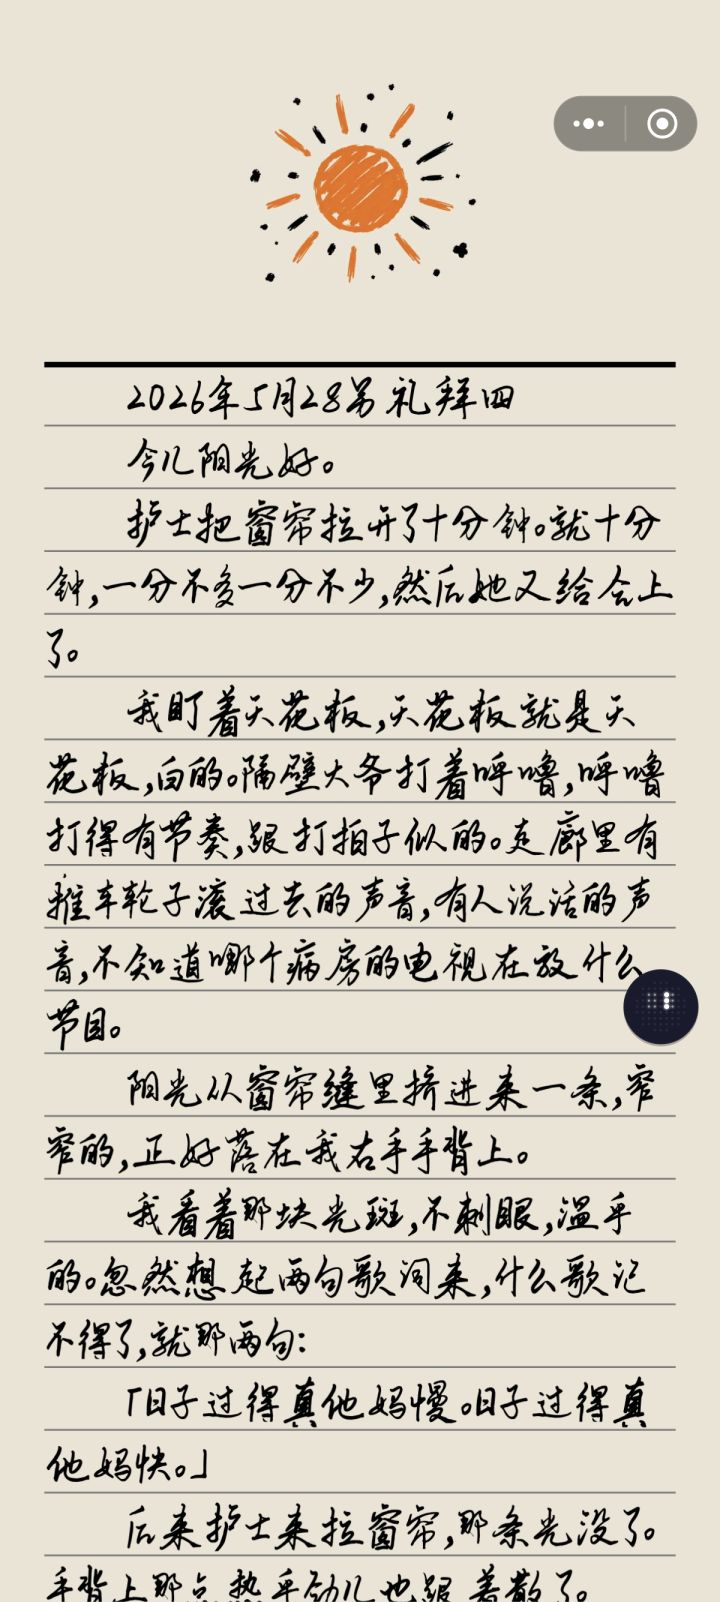 2026年5月28号 礼拜四
今儿阳光好。
护士把窗帘拉开了十分钟。就十分
钟,一分不多一分不少,然后她又给合上
了。
我盯着天花板,天花板就是天
花板,白的。隔壁大爷打着呼噜,呼噜
打得有节奏,跟打拍子似的。走廊里有
推车轮子滚过去的声音,有人说话的声
音,不知道哪个病房的电视在放什么
节目。
阳光从窗帘缝里挤进来一条,窄
窄的,正好落在我右手手背上。
我看着那块光斑,不刺眼,温乎
的。忽然想起两句歌词来,什么歌记
不得了,就那两句:
「日子过得真他妈慢。日子过得真
他妈快。」
后来护士来拉窗帘,那条光没了。
手背上那点热乎劲儿也跟着散了。